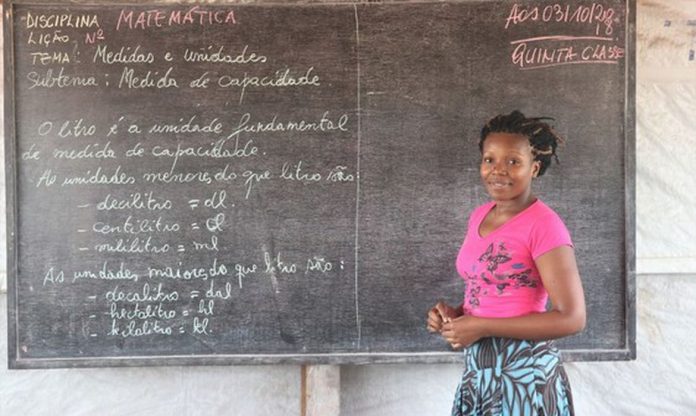 DISCIPLINA MATEMÁTICA
LIÇÃO Nº
TEMA: Medidas e unidades
Subtema: Medida de capacidade
O litro é a unidade fundamental
de medida de capacidade.
As unidades menores do que litro são:
- decilitro = dl.
- centilitro = cl
- mililitro = ml
As unidades maiores do que litro são:
- decalitro = dal
- hectalitro = hl
- kilalitro = kl.
Aos 03/10/2018
QUINTA CLASSE